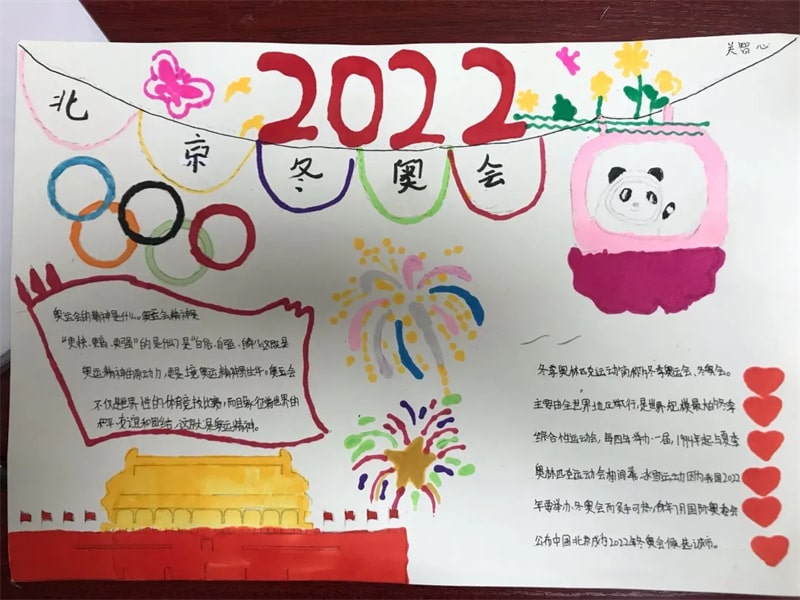 关智心
2022
北京冬奥会
奥运会的精神是什么。奥运会精神是
“更快、更高、更强”的是什么是“自信、自强、这就是
奥运精神的原动力，是奥运精神奥运会
不仅是世界性的体育竞技比赛，而且象征着世界的
和平、友谊和团结，这就是奥运精神。
冬季奥林匹克运动简称为冬季奥运会、冬奥会。
主要由全世界地区举行，是世界规模最大的冬季
综合性运动会，每四年举办一届，1994年起与夏季
奥林匹克运动会相间举，冰雪运动因为我国2022
年要举办冬奥会而炙手可热，月国际奥委会
公布中国北京成为2022年冬奥会候选城市。